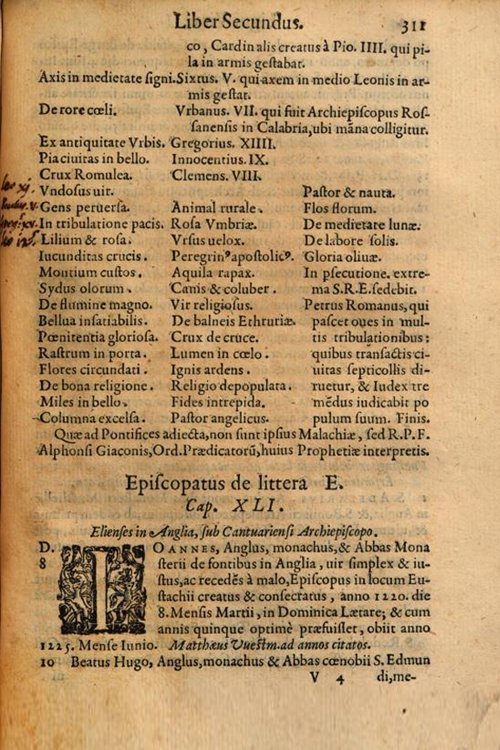 Liber Secundus. 311
co, Cardinalis creatus à Pio. IIII. qui pi-
la in armis geſtabat.
Axis in medietate ſigni. Sixtus. V. qui axem in medio Leonis in ar-
mis geſtat.
De rore cœli. Vrbanus. VII. qui fuit Archiepiſcopus Roſ-
ſanenſis in Calabria, ubi mãna colligitur.
Ex antiquitate Vrbis. Gregorius. XIIII.
Pia ciuitas in bello. Innocentius. IX.
Crux Romulea. Clemens. VIII.
Vndoſus uir. Paſtor & nauta.
Gens peruerſa. Animal rurale. Flos florum.
In tribulatione pacis. Roſa Vmbriæ. De medietate lunæ.
Lilium & roſa. Vrſus uelox. De labore ſolis.
Iucunditas crucis. Peregrinꝰ apoſtolicꝰ. Gloria oliuæ.
Montium cuſtos. Aquila rapax. In pſecutione. extre-
Sydus olorum. Canis & coluber. ma S.R.E. ſedebit.
De flumine magno. Vir religioſus. Petrus Romanus, qui
Bellua inſatiabilis. De balneis Ethruriæ. paſcet oues in mul-
Pœnitentia glorioſa. Crux de cruce. tis tribulationibus:
Raſtrum in porta. Lumen in cœlo. quibus tranſactis ci-
Flores circundati. Ignis ardens. uitas ſepticollis di-
De bona religione. Religio depopulata. ruetur, & Iudex tre
Miles in bello. Fides intrepida. mẽdus iudicabit po
Columna excelſa. Paſtor angelicus. pulum ſuum. Finis.
Quæ ad Pontifices adiecta, non ſunt ipſius Malachiæ, ſed R.P.F.
Alphonſi Giaconis, Ord. Prædicatorũ, huius Prophetiæ interpretis.
Epiſcopatus de littera E.
Cap. XLI.
Elienſes in Anglia, ſub Cantuarienſi Archiepiſcopo.
D. IOANNES, Anglus, monachus, & Abbas Mona
8 ſterii de fontibus in Anglia, uir ſimplex & iu-
ſtus, ac recedẽs à malo, Epiſcopus in locum Eu-
ſtachii creatus & conſecratus, anno 1220. die
8. Menſis Martii, in Dominica Lætare; & cum
annis quinque optimè præfuiſſet, obiit anno
1225. Menſe Iunio. Matthæus Vueſtm. ad annos citatos.
10 Beatus Hugo, Anglus, monachus & Abbas cœnobii S. Edmun
V 4 di, me-